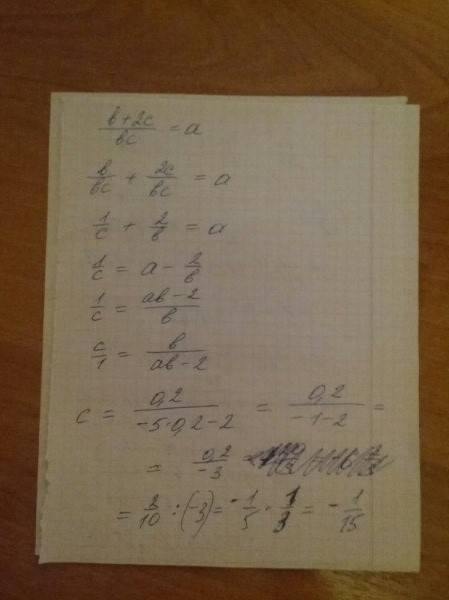 b+2c/bc = a
b/bc + 2c/bc = a
1/c + 2/b = a
1/c = a - 2/b
1/c = ab-2/b
c/1 = b/ab-2
c = 0,2/-5·0,2-2 = 0,2/-1-2 =
= 0,2/-3
= 2/10 : (-3) = -1/5 · 1/3 = -1/15